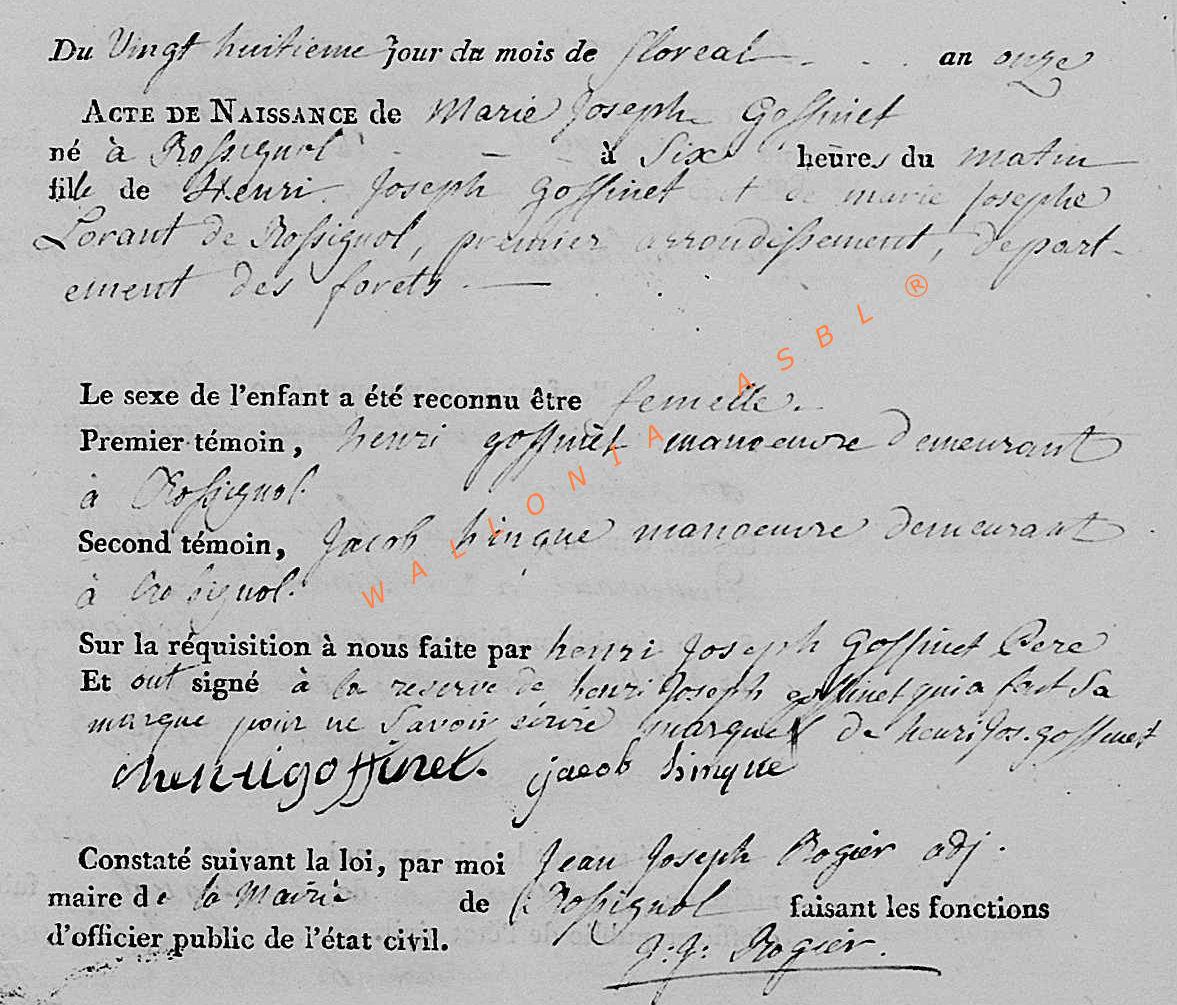 Du Vingt huitieme jour du mois de floreal an onze
ACTE DE NAISSANCE de Marie Joseph Goffinet
né à Rossignol à Six heures du matin
fille de Henri Joseph Goffinet et de marie josephe
Lorant de Rossignol, premier arrondissement, depart-
ement des forets
Le sexe de l'enfant a été reconnu être femelle.
Premier témoin, henri goffinet manoeuvre demeurant
à Rossignol.
Second témoin, Jacob hinque manoeuvre demeurant
à Rossignol.
Sur la réquisition à nous faite par henri Joseph Goffinet Pere
Et ont signé à la reserve de henri Joseph goffinet qui a fait Sa
marque pour ne Savoir écrire marque X de henri Jos. goffinet
henri goffinet. jacob hinque
Constaté suivant la loi, par moi Jean Joseph Rogier adj.
maire de la Mairie de Rossignol faisant les fonctions
d'officier public de l'état civil.
J. J. Rogier.
WALLONIA ASBL ®